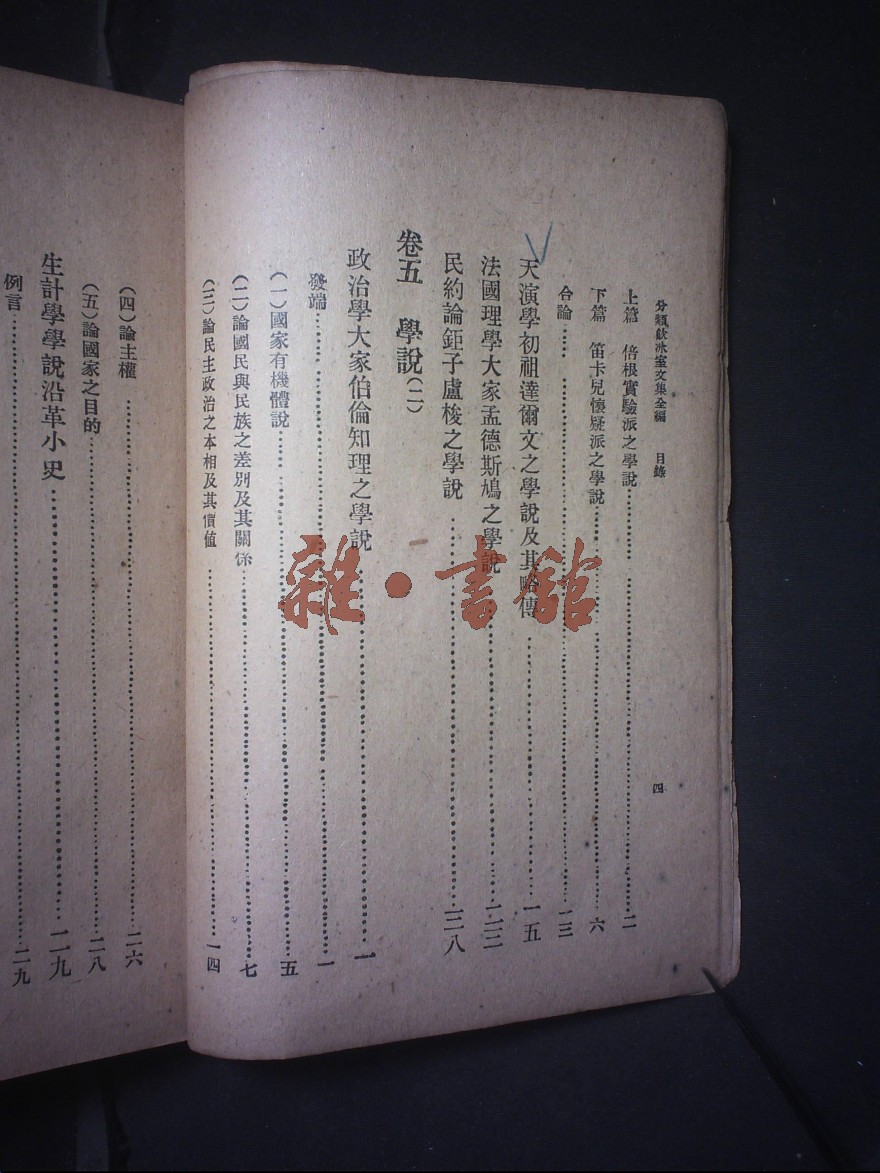 分類飲冰室文集全編　目錄　四
上篇　倍根實驗派之學說……二
下篇　笛卡兒懷疑派之學說……六
合論……一三
天演學初祖達爾文之學說及其略傳……一五
法國理學大家孟德斯鳩之學說……二三
民約論鉅子盧梭之學說……三八
卷五　學說(二)
政治學大家伯倫知理之學說……一
發端……一
(一)國家有機體說……五
(二)論國民與民族之差別及其關係……七
(三)論民主政治之本相及其價值……一四
(四)論主權……二六
(五)論國家之目的……二八
生計學學說沿革小史……二九
例言……二九
雜·書館